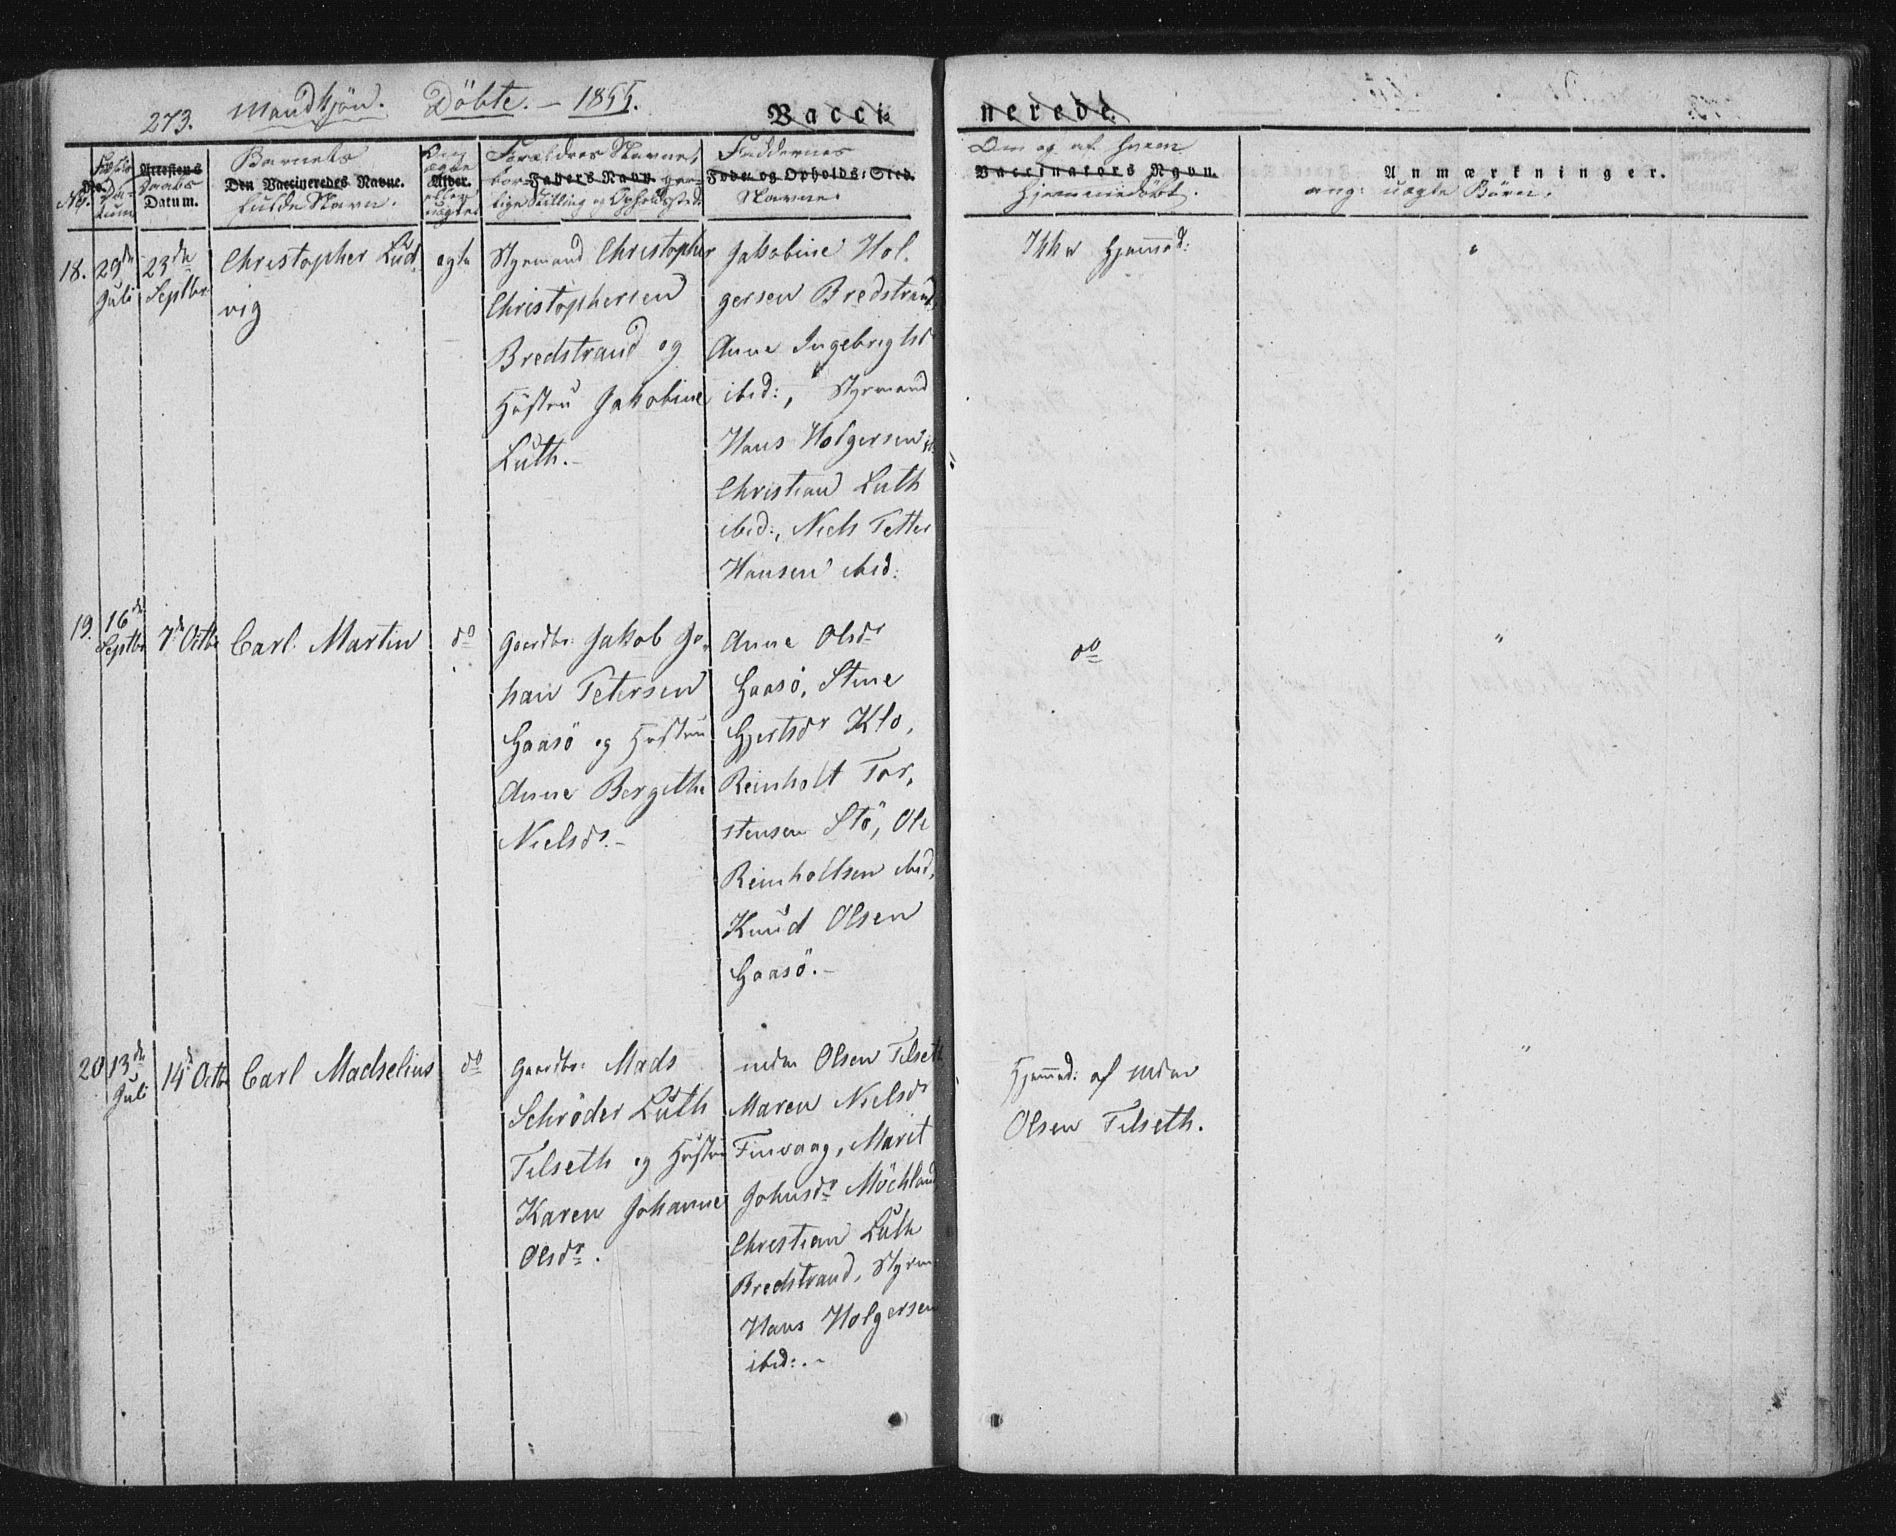 273. Mandkjön. Döbte. - 1855. Vacci- nerede.
No. Fødsels Datum
No. Attestens Daabs Datum.
Barnets
Den Vaccineredes Navne.
fulde Navn.
Om ægte
Alder.
eller uægte
Forældres Navne,
Faders Navn.
Stilling og Opholdssted
Faddernes
Føde: og Opholds: Sted.
Navne.
Om og af hvem
Vaccinators Navn.
hjemmedøbt.
Anmærkninger.
ang: uægte Börn.
18. 29de Juli 23de Septbr
Christopher Lud-
vig
ægte
Styrmand Christopher
Christophersen
Bredstrand og
Hustru Jakobine
Luth.-
Jakobine Hol-
gersen Bredstrand,
Anne Ingebrigtsdr
ibid:, Styrmand
Hans Holgersen ib:
Christian Luth
ibid:, Niels Petter
Hansen ibid:
Ikke hjemmed:
"
19. 16de Septbr 7de Octbr
Carl Martin
do
Gaardbr: Jakob Jo-
han Petersen
Gaasö og Hustru
Anne Bergithe
Nielsdr.-
Anne Olsdr
Gaasö, Stine
Gjertsdr Klo,
Reinholt Tor-
stensen Stö, Ole
Reinholtsen ibid,
Knud Olsen
Gaasö.-
do
"
20 13de Juli 14de Octbr
Carl Madselius
do
Gaardbr: Mads
Schrøder Luth
Tilseth og Hustru
Karen Johanne
Olsdr.
Peder Olsen Tilseth
Maren Nielsdr
Finvaag, Marit
Johnsdr Möchland
Christian Luth
Bredstrand, Styrm.
Hans Holgersen
ibid:.-
Hjemmed: af Peder
Olsen Tilseth.
"